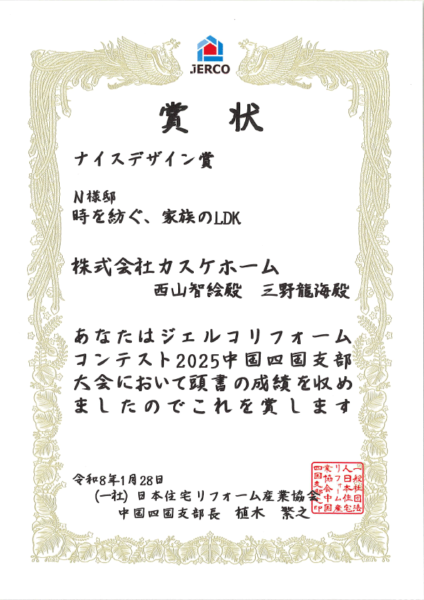 JERCO
賞状
ナイスデザイン賞
N様邸
時を紡ぐ、家族のLDK
株式会社カスケホーム
西山智絵殿 三野龍海殿
あなたはジェルコリフォーム
コンテスト2025中国四国支部
大会において頭書の成績を収め
ましたのでこれを賞します
令和8年1月28日
(一社)日本住宅リフォーム産業協会
中国四国支部長 植木 繁之
一般社団法
人日本住宅
リフォーム産
業協会中国
四国支部印